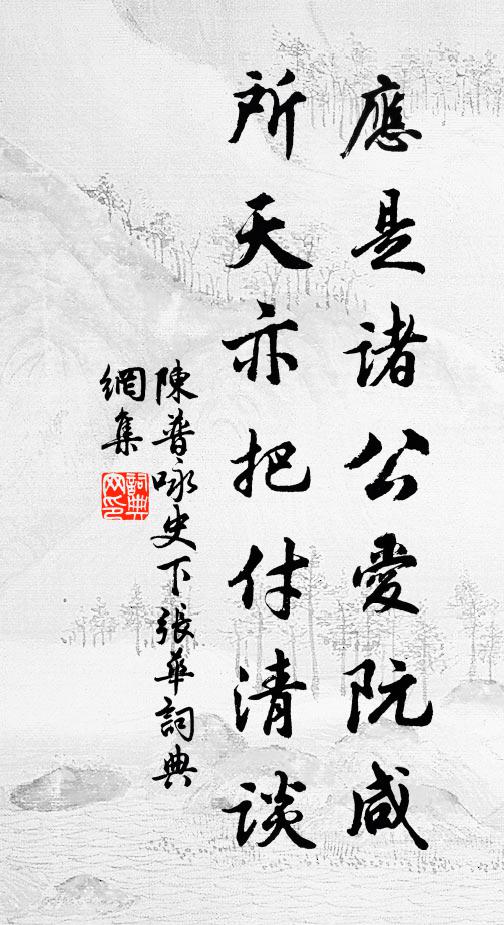 應是諸公愛阮咸
所天亦把付清談
陳普詠史下張華詞典
網集
詞典
网印